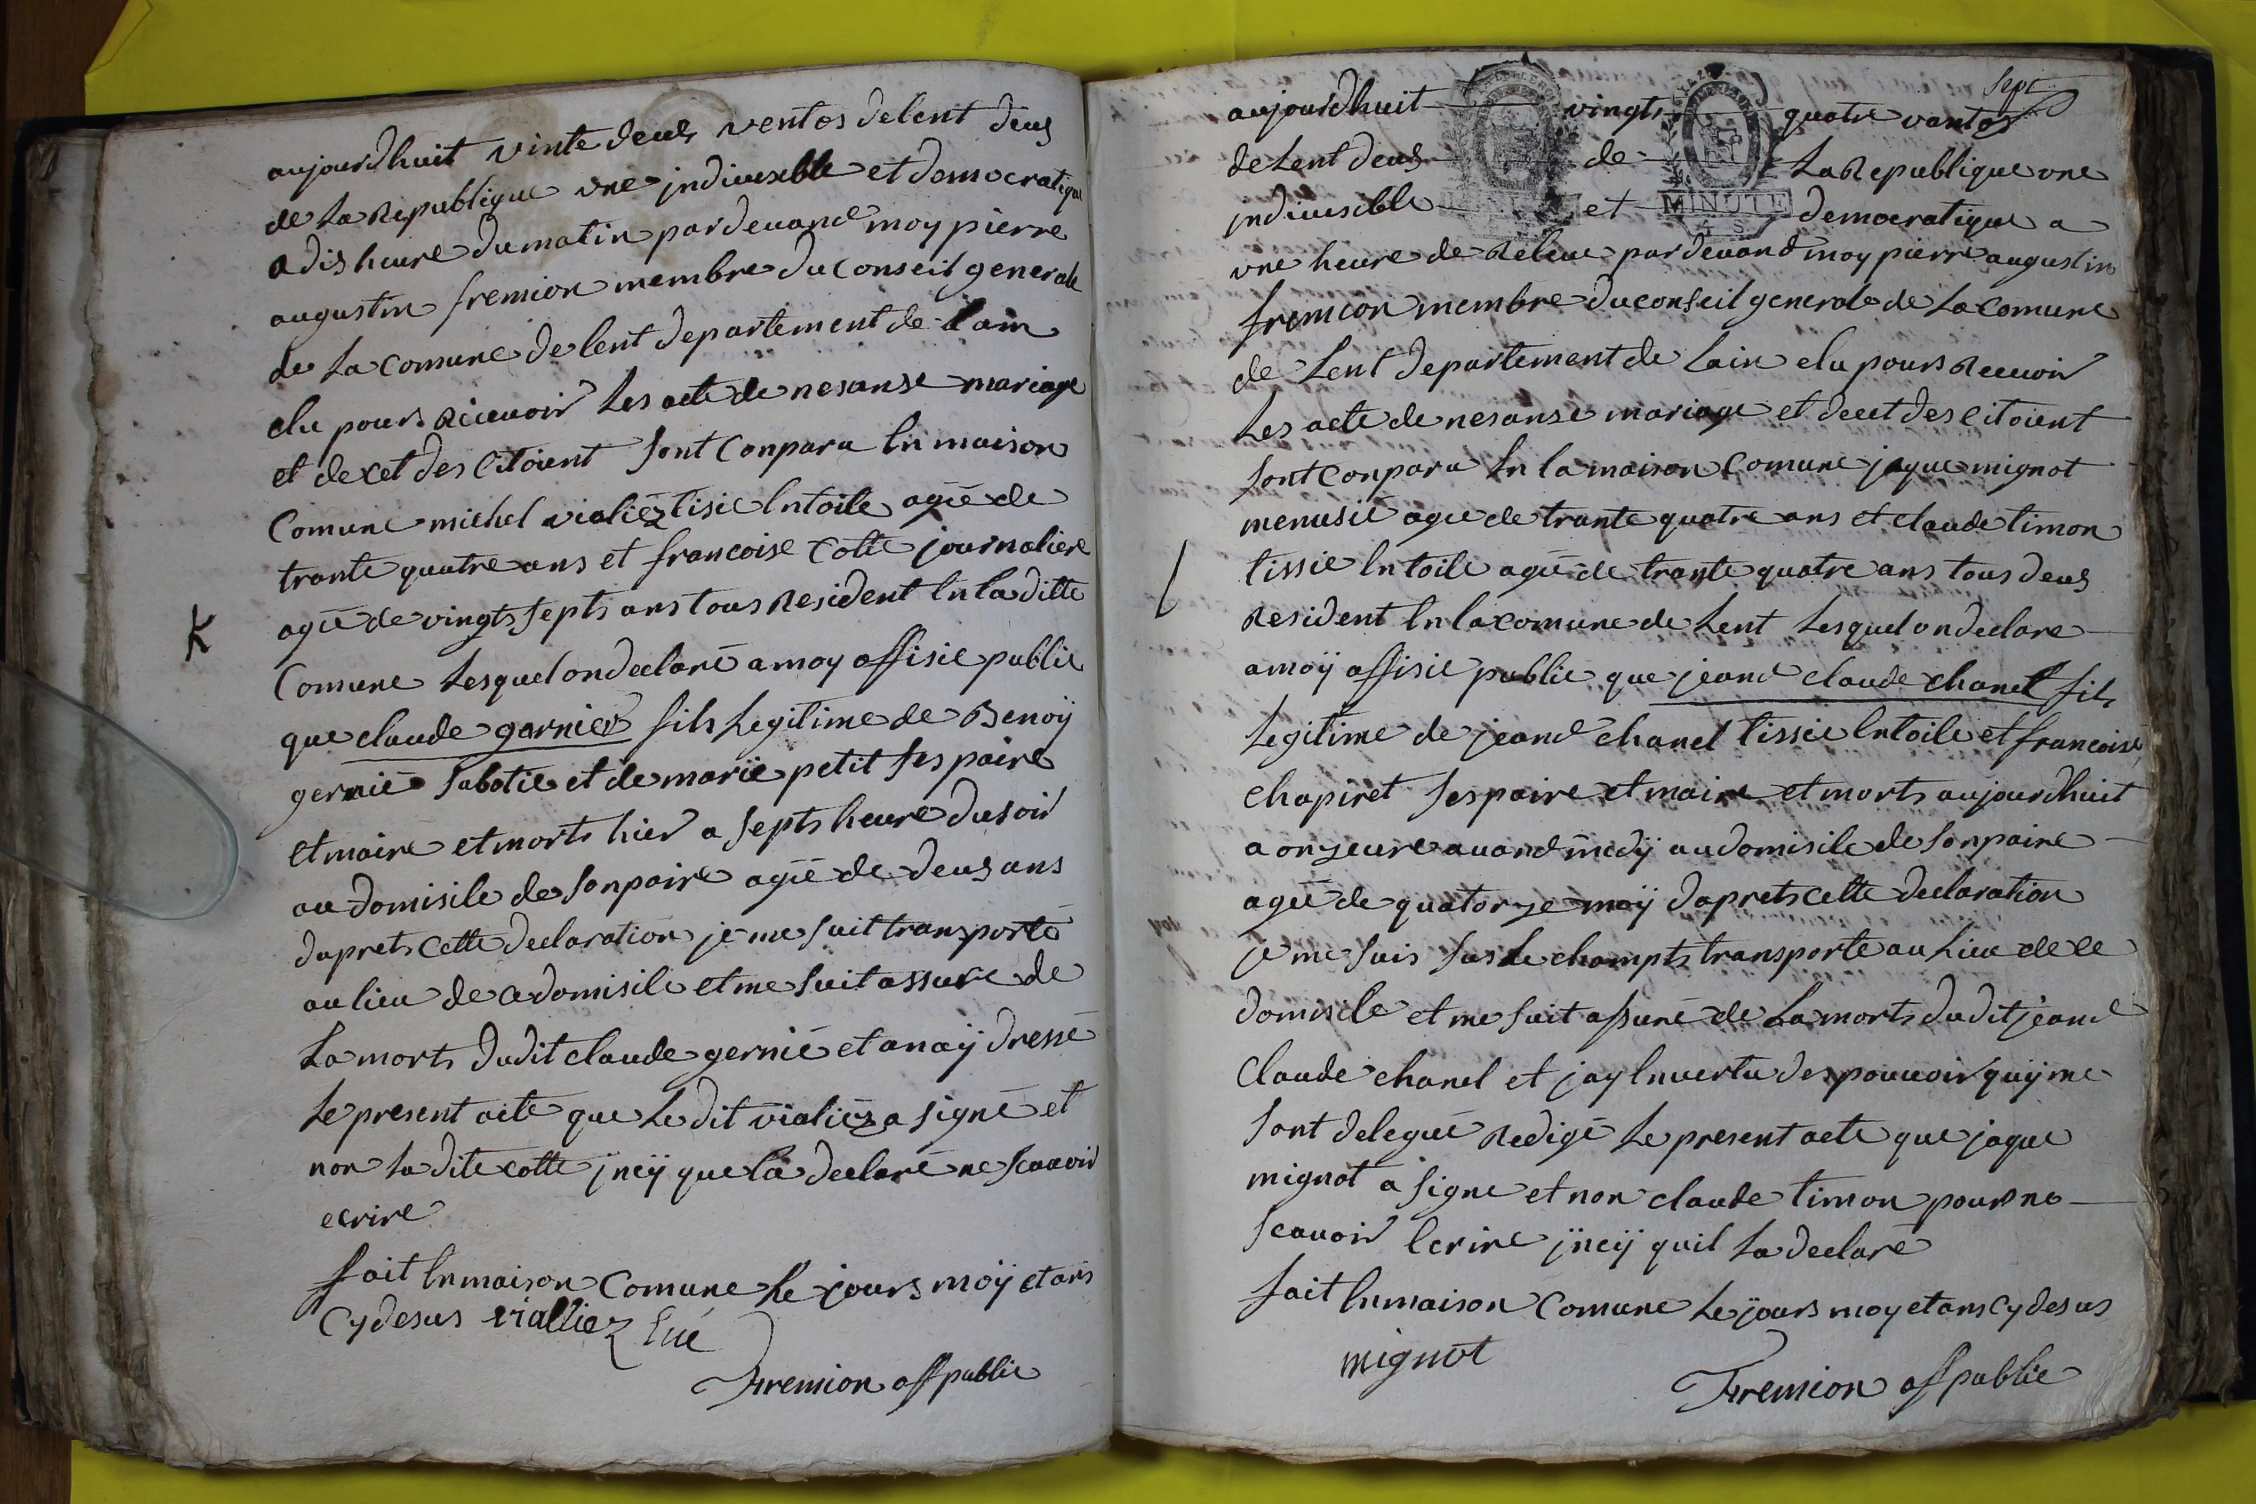 aujourdhuit vinte deus ventos delent deus
de La Republique une jndivisible et democratique
a dis heure du matin pardevand moy pierre
augustin fremion membre du conseil generale
de La Comune de lent departement de lain
elu pours Ricevoir Les acte de nesanse mariage
et decet des Citoient sont Conparu ln maison
Comune michel vialiez tisie lntoile agié de
trante quatre ans et francoise Cotte journaliere
agié de vingts septs ans tous Resident ln la ditte
K
Comune Lesquel on declaré a moy offisie public
que claude garnier fils Legitime de Benoij
gernié sabotie et de marie petit ses paire
et maire et morts hier a septs heure du soir
au domisile de son paire agié de deus ans
daprets cette declaration je me suit transporté
au lieu de ce domisile et me suit assure de
La morts dudit claude gernié et anaij dressé
Le present acte que Le dit vialiez a signé et
non La dite cotte jncij que la declaré ne scavoir
ecrire
fait ln maison Comune Le jours moij et ans
Cy desus vialliez
Fremion off public
sept
aujourdhuit vingts quatre vantos
de Lent deus de La Republique une
jndivisible et democratique a
MINUTE
une heure de Releve pardevand moy pierre augustin
fremion membre du conseil generale de La comune
de Lent departement de Lain elu pours Recevoir
Les acte de nesanse mariage et decet des citoient
sont conparu ln la maison Comune jaque mignot
menusié agié de trante quatre ans et claude timon
tissie lntoile agié de trante quatre ans tous deus
Resident ln la comune de Lent Lesquel on declare
a moij offisie public que jeand claude chanel fils
Legitime de jeand chanel tissie lntoile et francoise
chapiret ses paire et maire et morts aujourdhuit
a onzeure avand medij au domisile de son paire
agié de quatorze moij daprets cette declaration
je me suis sus Le champts transporte au Lieu de ce
domisile et me suit assuré de La morts du dit jeand
Claude chanel et jay ln vertu des pouvoir quij me
sont delegué Redigé Le present acte que jaque
mignot a signe et non claude timon pour ne
scavoir lcrire jncij quil La declaré
fait ln maison Comune Le jours moy et ans cy desus
mignot
Fremion off public